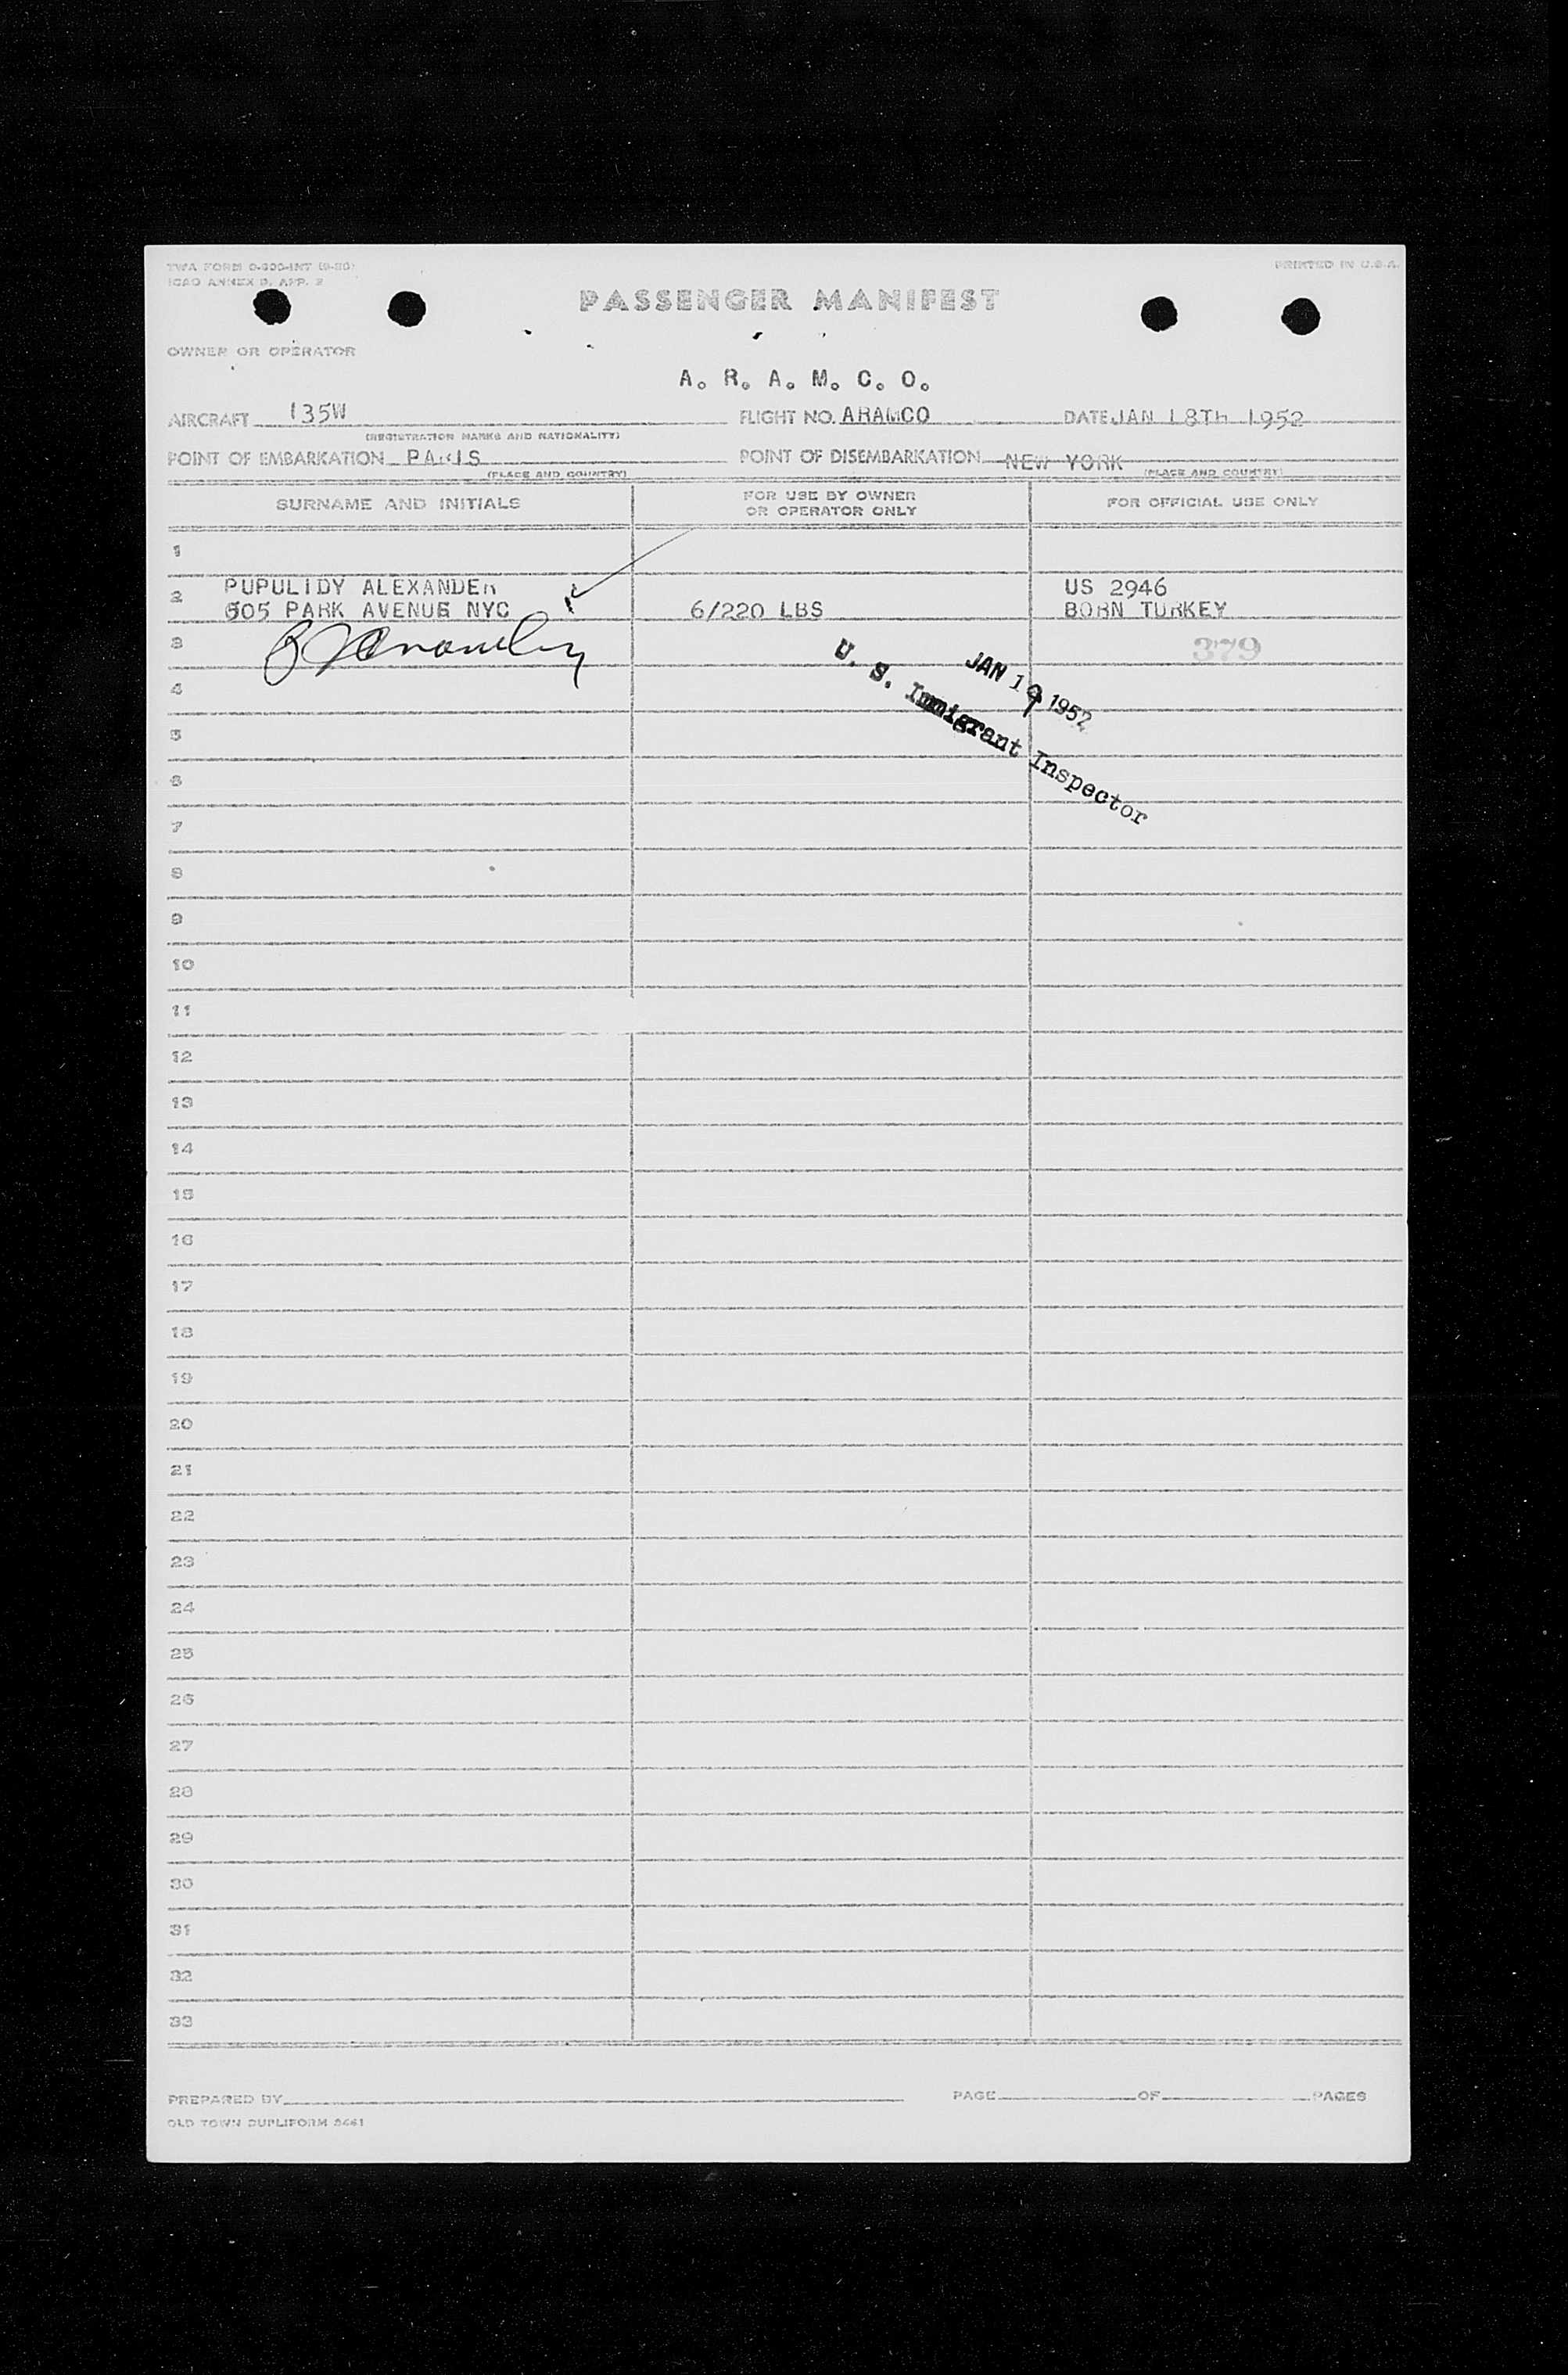 TWA FORM O-300-INT (9-50)
PRINTED IN U.S.A.
ICAO ANNEX 9, APP. 2
PASSENGER MANIFEST
OWNER OR OPERATOR
A. R. A. M. C. O.
AIRCRAFT 135W FLIGHT NO. ARAMCO DATE JAN 18TH 1952
(REGISTRATION MARKS AND NATIONALITY)
POINT OF EMBARKATION PARIS POINT OF DISEMBARKATION NEW YORK
(PLACE AND COUNTRY) (PLACE AND COUNTRY)
SURNAME AND INITIALS FOR USE BY OWNER OR OPERATOR ONLY FOR OFFICIAL USE ONLY
1
2 PUPULIDY ALEXANDER US 2946
505 PARK AVENUE NYC 6/220 LBS BORN TURKEY
3 379
JAN 19 1952
U. S. Immigrant Inspector
4
5
6
7
8
9
10
11
12
13
14
15
16
17
18
19
20
21
22
23
24
25
26
27
28
29
30
31
32
33
PREPARED BY PAGE OF PAGES
OLD TOWN DUPLIFORM 8461